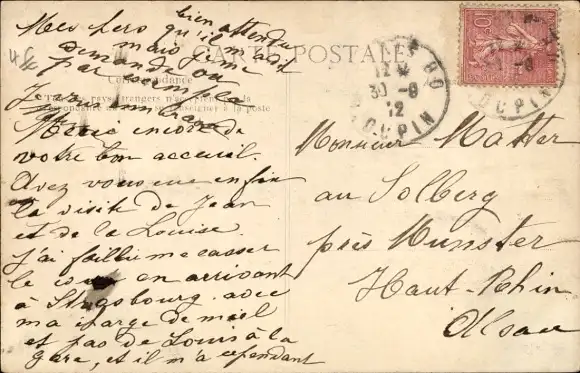 bien attendu
Mes pero qu'il m'a dit
mais je me
demande ou
par exemple
Je vous embrasse
CARTE POSTALE
Correspondance
Tous les pays étrangers n'acceptent pas la
correspondance se renseigner à la poste
Merci encore de
votre bon accueil.
Avez vous eue enfin
la visite de Jean
et de la Louise.
J'ai faillie me casser
le cou en arrivant
à Strasbourg avec
ma charge de miel
et pas de Louis à la
gare, et il m'a cependant
12
30 -8
12
DUPIN
10
Monsieur Matter
au Solberg
près Munster
Haut-Rhin
Alsace